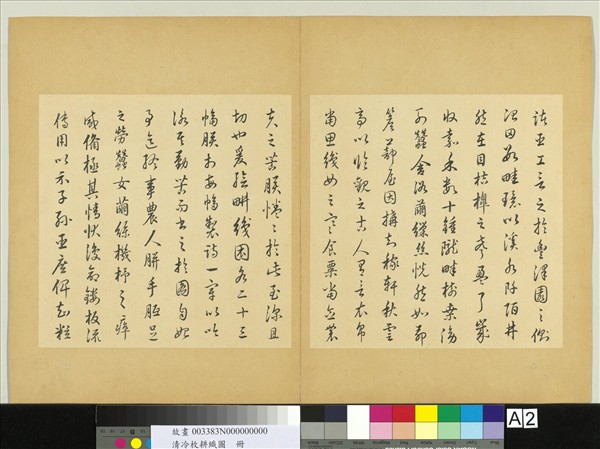 諸臣工言之於豐澤園之側
治田數畦環以溪水阡陌井
然在目桔槔之聲盈耳歲
收嘉禾數十鍾隴畔樹桑傍
列蠶舍浴繭繅絲恍然如茆
簷蔀屋因搆知稼軒秋雲
亭以臨觀之古人有言衣帛
當思織女之寒食粟當念農
夫之苦朕惓惓於此至深且
切也爰繪耕織圖各二十三
幅朕於每幅製詩一章以吟
詠其勤苦而書之於圖自始
事迄終事農人胼手胝足
之勞蠶女繭絲機杼之瘁
咸備極其情狀復命鏤板流
傳用以示子孫臣庶俾知粒
故畫 003383N000000000
清冷枚耕織圖 冊
A2